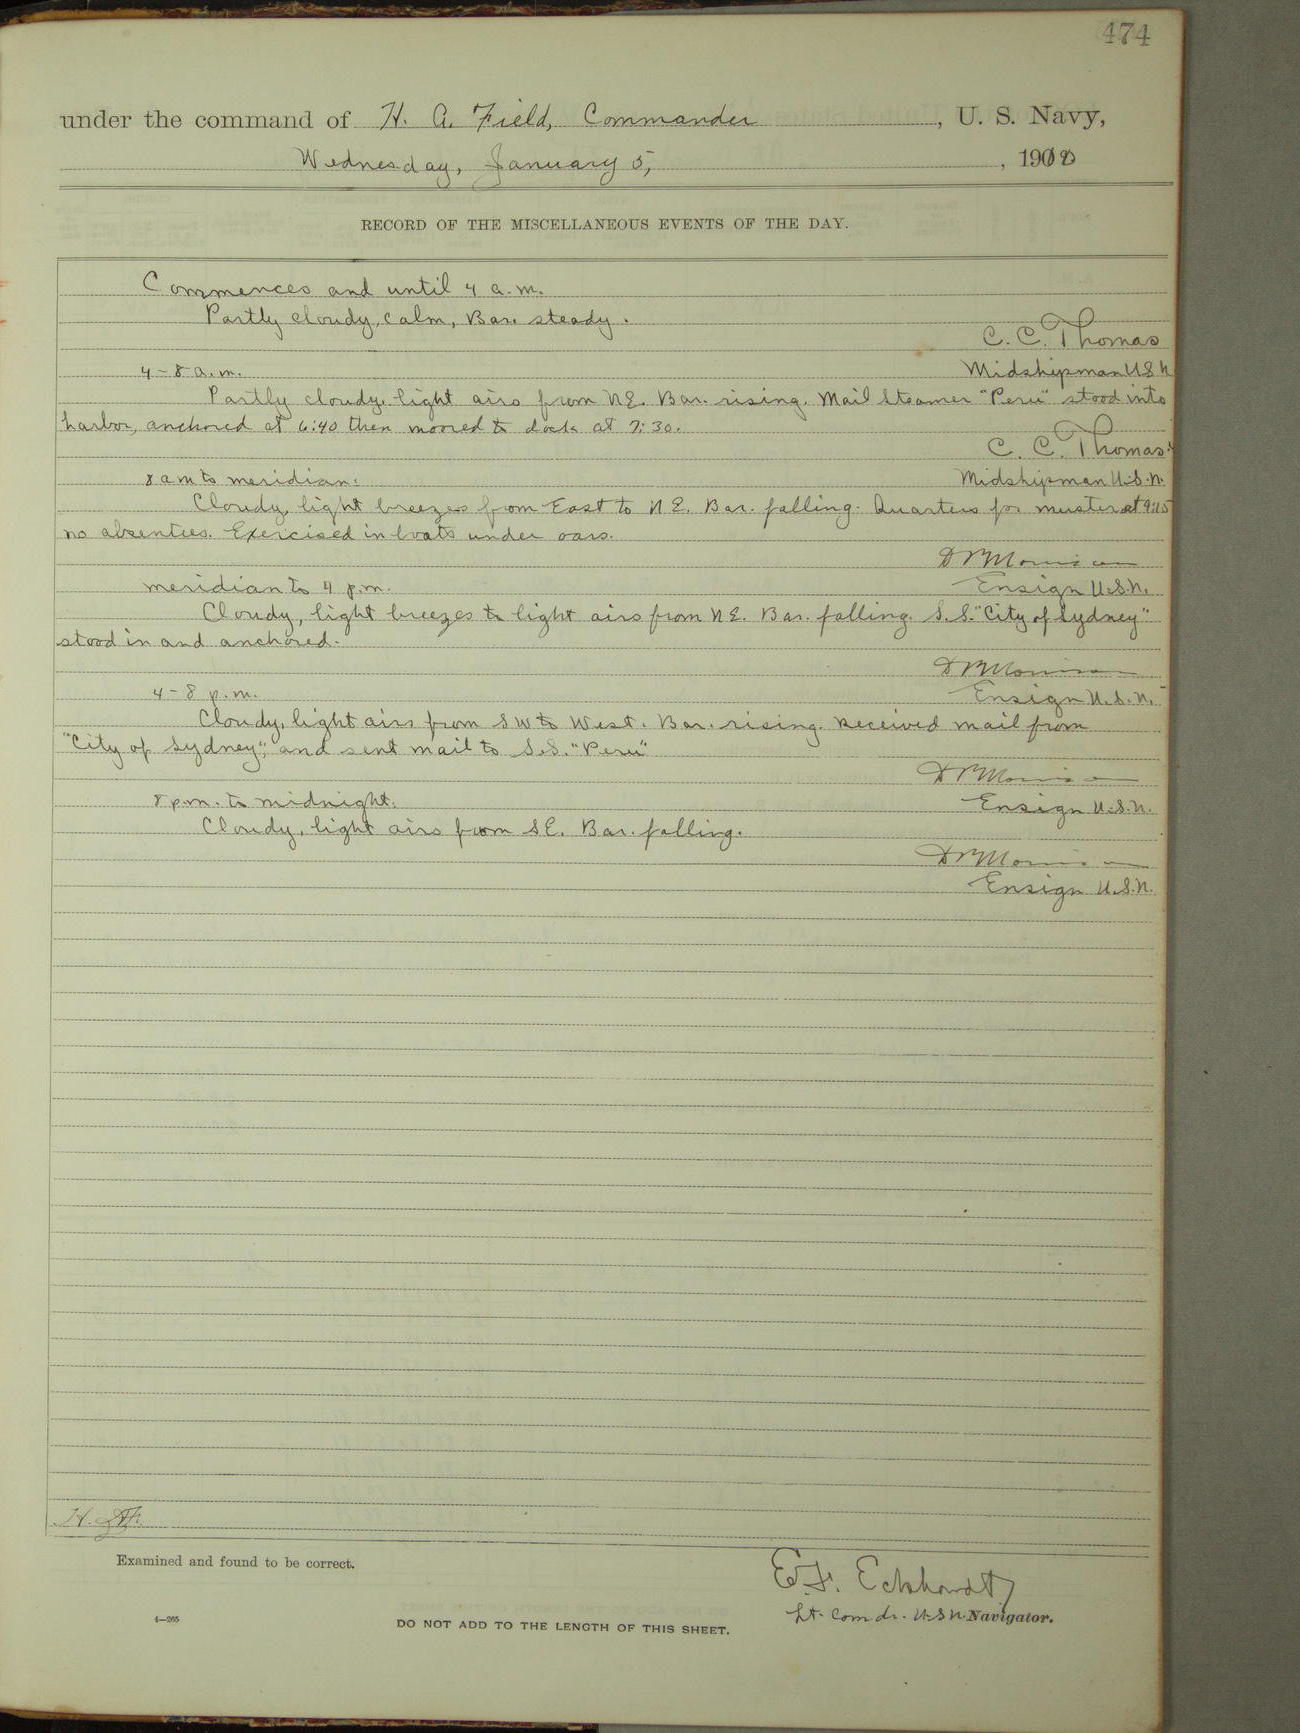 474
under the command of H. A. Field, Commander, U. S. Navy,
Wednesday, January 5, , 1910
RECORD OF THE MISCELLANEOUS EVENTS OF THE DAY.
Commences and until 4 a.m.
Partly cloudy, calm, Bar. steady.
C. C. Thomas
4-8 a.m.
Midshipman U.S.N
Partly cloudy, light airs from NE. Bar. rising. Mail Steamer "Peru" stood into
harbor, anchored at 6:40 then moored to dock at 7:30.
C. C. Thomas
8 am to meridian:
Midshipman U.S.N.
Cloudy, light breezes from East to NE. Bar. falling. Quarters for muster at 9:15
no absentees. Exercised in boats under oars.
D M Morrison
meridian to 4 p.m.
Ensign U.S.N.
Cloudy, light breezes to light airs from NE. Bar. falling. S.S. "City of Sydney"
stood in and anchored.
Morrison
4-8 p.m.
Ensign U.S.N.
Cloudy, light airs from SW to West. Bar. rising. Received mail from
"City of Sydney", and sent mail to S.S. "Peru"
Morrison
8 p.m. to midnight.
Ensign U.S.N.
Cloudy, light airs from SE. Bar. falling.
Morrison
Ensign U.S.N.
H.
Examined and found to be correct.
E.F. Eckhardt
Lt. Comdr. U.S.N. Navigator.
4-265
DO NOT ADD TO THE LENGTH OF THIS SHEET.